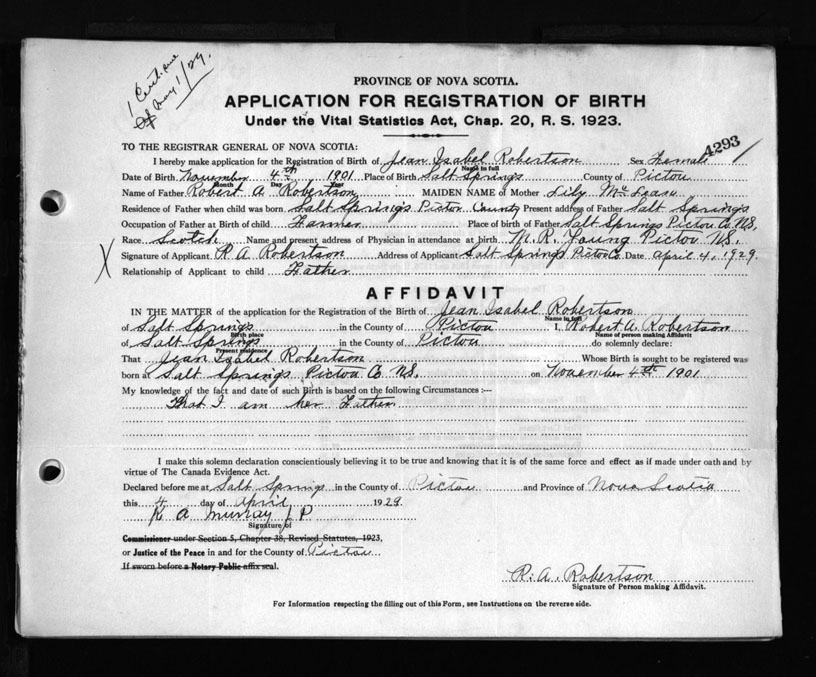 1 Cert. sue
of May 1/29.
PROVINCE OF NOVA SCOTIA.
APPLICATION FOR REGISTRATION OF BIRTH
Under the Vital Statistics Act, Chap. 20, R. S. 1923.
4293
TO THE REGISTRAR GENERAL OF NOVA SCOTIA:
I hereby make application for the Registration of Birth of Jean Isabel Robertson Sex Female
Name in full
Date of Birth November 4th 1901 Place of Birth Salt Springs County of Pictou
Month Day Year
Name of Father Robert A Robertson MAIDEN NAME of Mother Lily McLean
Residence of Father when child was born Salt Springs Pictou County Present address of Father Salt Springs
Occupation of Father at Birth of child Farmer Place of birth of Father Salt Springs Pictou Co N.S.
Race Scotch Name and present address of Physician in attendance at birth M. R. Young Pictou N.S.
X Signature of Applicant R A Robertson Address of Applicant Salt Springs Pictou Co. Date April 4, 1929
Relationship of Applicant to child Father
AFFIDAVIT
IN THE MATTER of the application for the Registration of the Birth of Jean Isabel Robertson
Name in full
of Salt Springs in the County of Pictou I, Robert A. Robertson
Birth place Name of person making Affidavit
of Salt Springs in the County of Pictou do solemnly declare:
Present residence
That Jean Isabel Robertson Whose Birth is sought to be registered was
born at Salt Springs Pictou Co N.S. on November 4th 1901
My knowledge of the fact and date of such Birth is based on the following Circumstances :—
That I am her Father
I make this solemn declaration conscientiously believing it to be true and knowing that it is of the same force and effect as if made under oath and by
virtue of The Canada Evidence Act.
Declared before me at Salt Springs in the County of Pictou and Province of Nova Scotia
this 4 day of April 1929
R A Murray J P
Signature of
Commissioner under Section 5, Chapter 38, Revised Statutes, 1923,
or Justice of the Peace in and for the County of Pictou
If sworn before a Notary Public affix seal.
R. A. Robertson
Signature of Person making Affidavit.
For Information respecting the filling out of this Form, see Instructions on the reverse side.